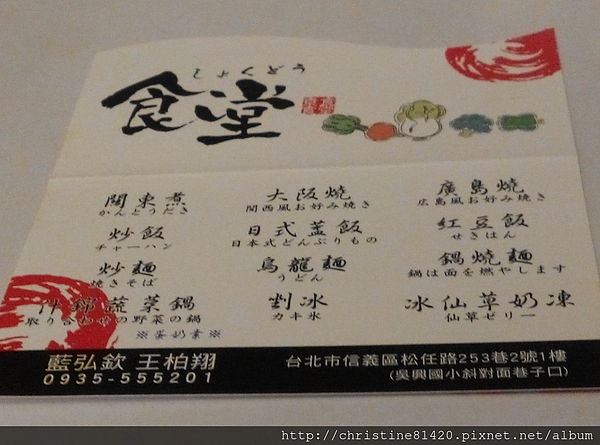 しょくどう
食堂
関東煮
かんとうだき
大阪燒
関西風お好み焼き
廣島燒
広島風お好み焼き
炒飯
チャーハン
日式蓋飯
日本式どんぶりもの
紅豆飯
せきはん
炒麵
焼きそば
烏龍麵
うどん
鍋燒麵
鍋は面を燃やします
什錦蔬菜鍋
取り合わせの野菜の鍋
剉冰
カキ氷
冰仙草奶凍
仙草ゼリー
※蛋奶素※
藍弘欽 王柏翔
0935-555201
台北市信義區松仁路253巷2號1樓
(吳興國小斜對面巷子口)
http://christine81420.pixnet.net/album